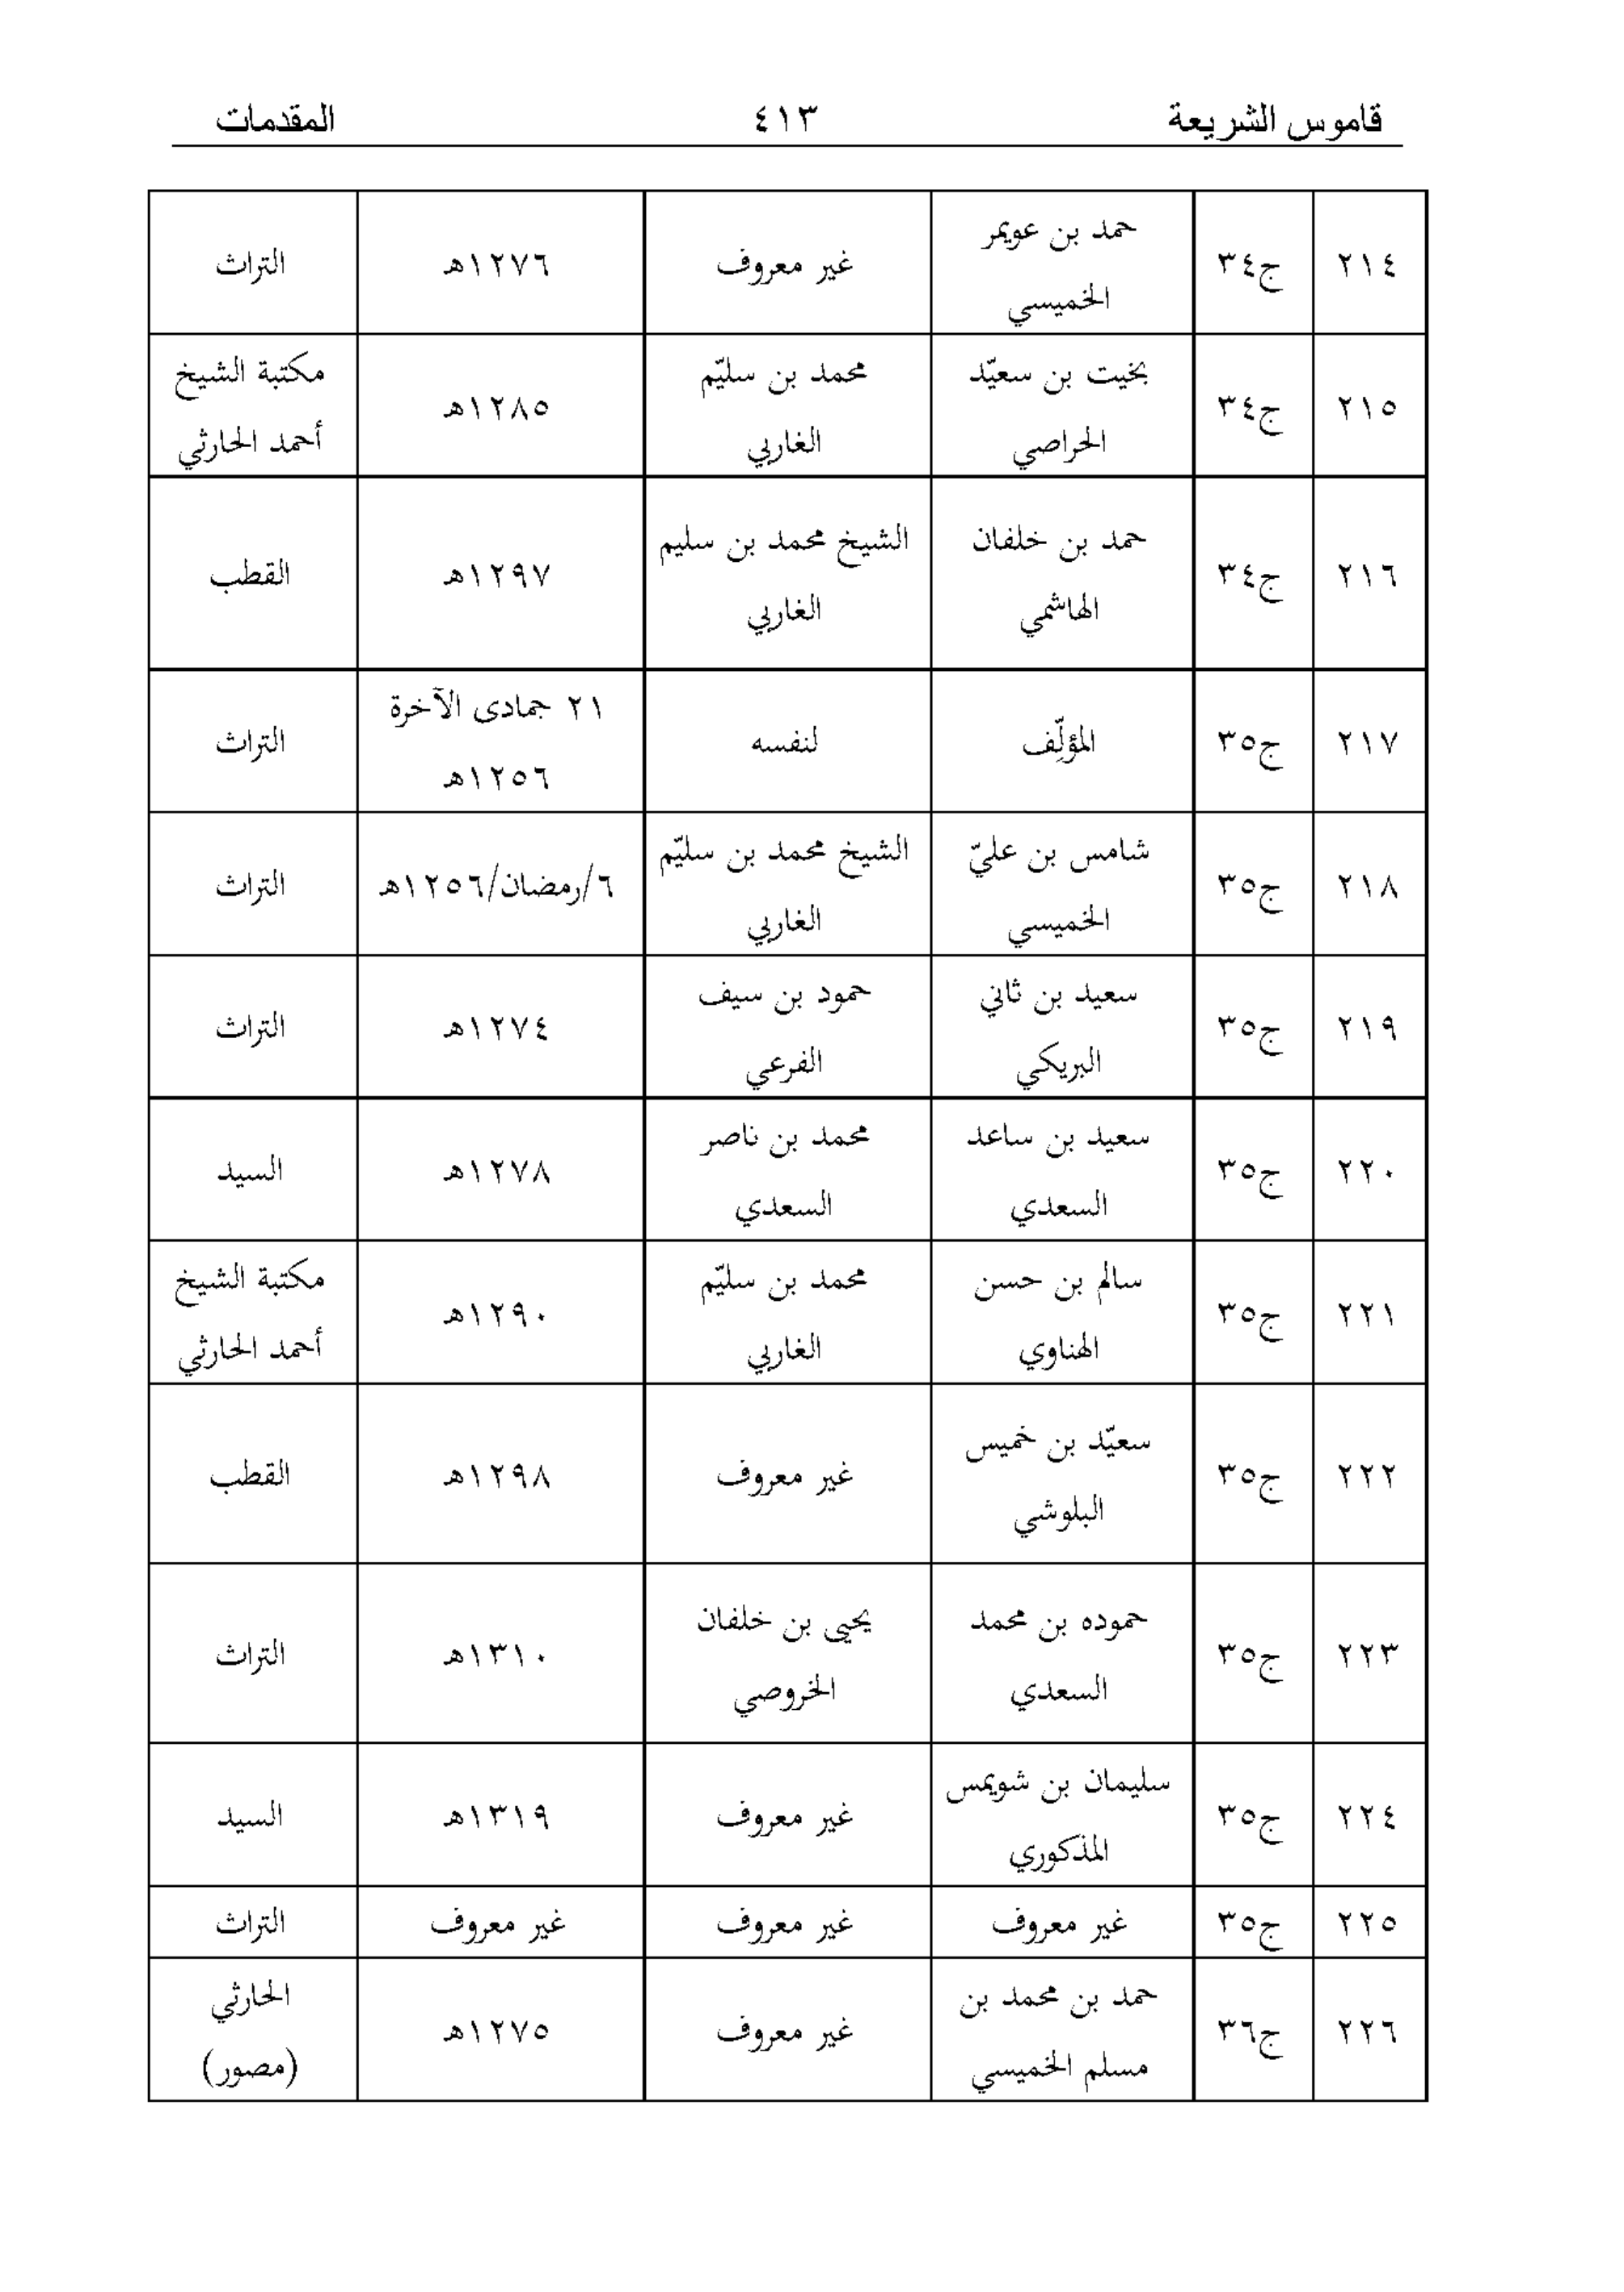 قاموس الشريعة ٤١٣ المقدمات
٢١٤ ج٣٤ حمد بن عويمر الخميسي غير معروف ١٢٧٦هـ التراث
٢١٥ ج٣٤ بخيت بن سعيّد الحراصي محمد بن سليّم الغاربي ١٢٨٥هـ مكتبة الشيخ أحمد الحارثي
٢١٦ ج٣٤ حمد بن خلفان الهاشمي الشيخ محمد بن سليم الغاربي ١٢٩٧هـ القطب
٢١٧ ج٣٥ المؤلِّف لنفسه ٢١ جمادى الآخرة ١٢٥٦هـ التراث
٢١٨ ج٣٥ شامس بن عليّ الخميسي الشيخ محمد بن سليّم الغاربي ٦/رمضان/١٢٥٦هـ التراث
٢١٩ ج٣٥ سعيد بن ثاني البريكي حمود بن سيف الفرعي ١٢٧٤هـ التراث
٢٢٠ ج٣٥ سعيد بن ساعد السعدي محمد بن ناصر السعدي ١٢٧٨هـ السيد
٢٢١ ج٣٥ سالم بن حسن الهناوي محمد بن سليّم الغاربي ١٢٩٠هـ مكتبة الشيخ أحمد الحارثي
٢٢٢ ج٣٥ سعيّد بن خميس البلوشي غير معروف ١٢٩٨هـ القطب
٢٢٣ ج٣٥ حموده بن محمد السعدي يحيى بن خلفان الخروصي ١٣١٠هـ التراث
٢٢٤ ج٣٥ سليمان بن شويمس المذكوري غير معروف ١٣١٩هـ السيد
٢٢٥ ج٣٥ غير معروف غير معروف غير معروف التراث
٢٢٦ ج٣٦ حمد بن محمد بن مسلم الخميسي غير معروف ١٢٧٥هـ الحارثي (مصور)